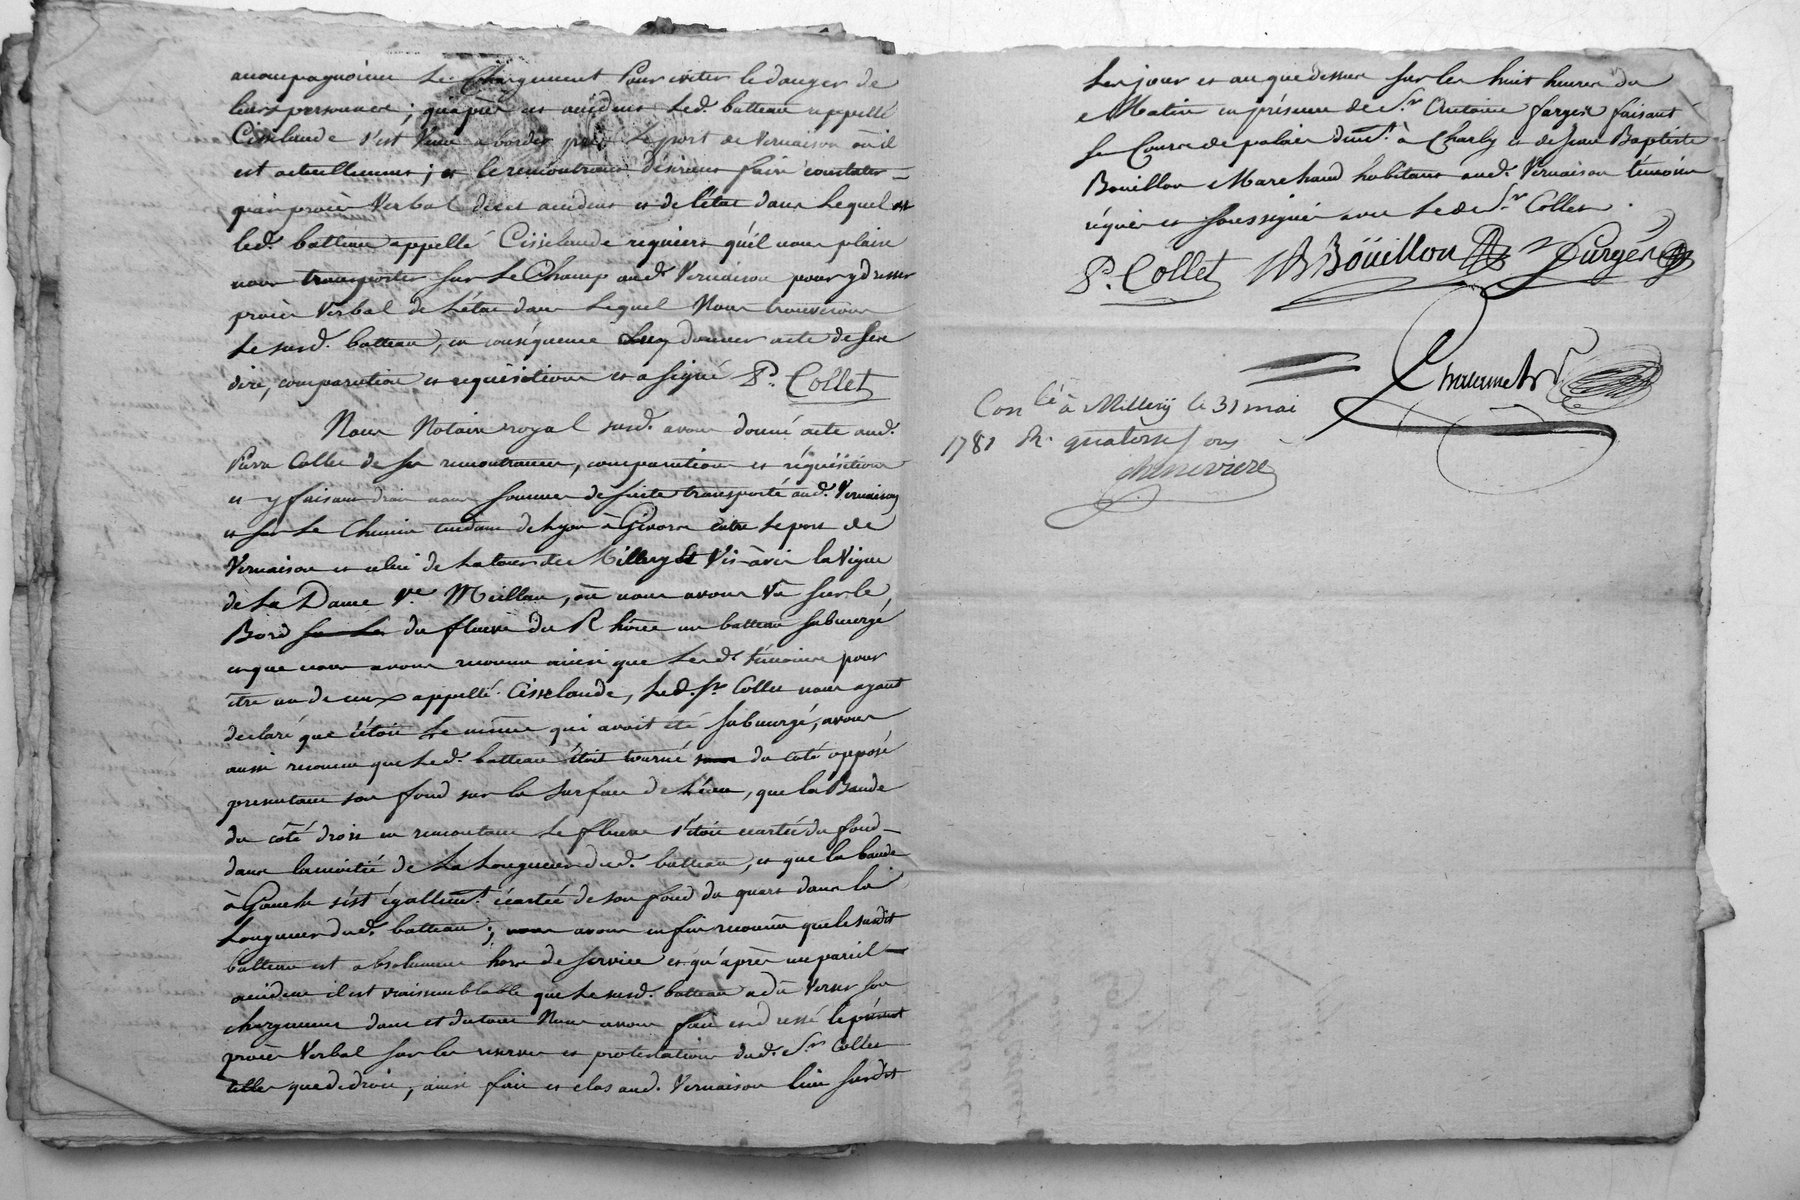 accompagnoient le Chargement pour eviter le danger de
leurs personnes ; qu'après cet accident led. batteau appellé
Cisselande s'est venu aborder près le port de Vernaison où il
est actuellement ; et le remontrant désirant faire constater
par procès Verbal de cet accident et de l'état dans lequel est
led. batteau appellé Cisselande requiert qu'il nous plaise
nous transporter sur le Champ aud. Vernaison pour y dresser
procès Verbal de l'état dans lequel Nous trouverons
le susd. batteau, en conséquence luy donner acte de ses
dire, comparution et requisitions et a signé P. Collet
Nous Notaire royal susd. avons donné acte aud.
Pierre Collet de sa remontrance, comparution et réquisition
et y faisant droit nous sommes de suite transporté aud. Vernaison
et sur le Chemin tendant de Lyon à Givors entre le port de
Vernaison et celui de la tour de Millery et Vis-à-vis la Vigne
de la Dame Ve. Meillan, où nous avons Vû sur le
Bord sur le du fleuve du Rhône un batteau submergé
et que nous avons reconnu ainsi que lesd. témoins pour
être un de ceux appellé Cisselande, led. Sr. Collet nous ayant
declaré que c'étoit le même qui avoit été submergé, avons
aussi reconnu que led. batteau étoit tourné du coté opposé
presentant son fond sur la surface de l'eau, que la Bande
du côté droit en remontant le fleuve s'étoit ecartée du fond
dans la moitié de la longueur dud. batteau, et que la bande
à Gauche s'est égallemt. écartée de son fond du quart dans la
longueur dud. batteau ; avons enfin reconnu que le susdit
batteau est absolument hors de service et qu'après un pareil
accident il est vraisemblable que le susd. batteau a dû Verser son
chargement dont et du tout Nous avons fait et dressé le présent
procès Verbal sous les reserves et protestations dud. Sr. Collet
telles que de droit, ainsi fait et clos aud. Vernaison lieu susdit
Les jour et an que dessus sur les huit heures du
Matin en présence de Sr. Antoine farges faisant
le Cours de palais demt. à Charly et de Jean Baptiste
Bouillon Marchand habitant aud. Vernaison témoins
réquis et soussignés avec le d. Sr. Collet.
P. Collet JB Boüillon farges
Con.lé à Millery le 31 mai
1781 R. quatorse sous
chenevierre